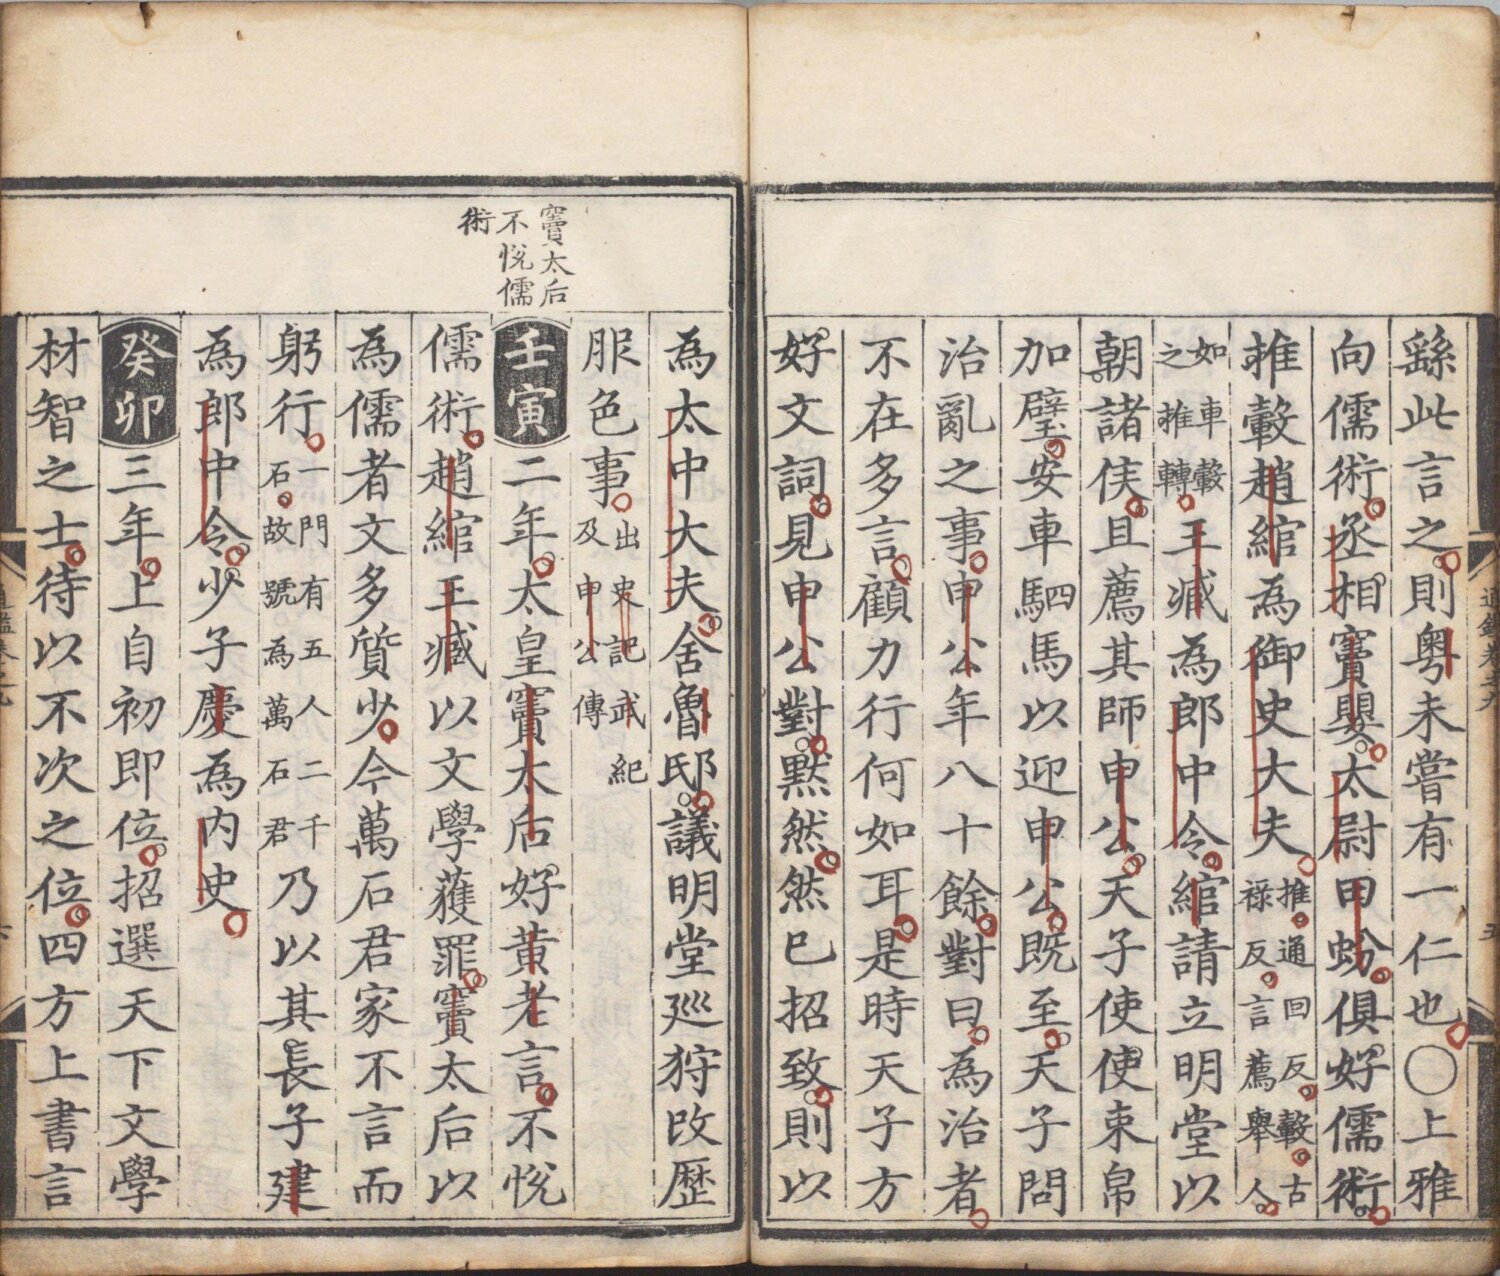 繇此言之則粤未嘗有一仁也○上雅
向儒術丞相竇嬰太尉田蚡俱好儒術
推轂趙綰為御史大夫推通回反轂古祿反言薦舉人
如車轂之推轉王臧為郎中令綰請立明堂以
朝諸侯且薦其師申公天子使使束帛
加璧安車駟馬以迎申公既至天子問
治亂之事申公年八十餘對曰為治者
不在多言顧力行何如耳是時天子方
好文詞見申公對默然然已招致則以
為太中大夫舍魯邸議明堂巡狩改歷
服色事出史記武紀及申公傳
竇太后
不悅儒
術
壬寅二年太皇竇太后好黃老言不悅
儒術趙綰王臧以文學獲罪竇太后以
為儒者文多質少今萬石君家不言而
躬行一門有五人二千石故號為萬石君乃以其長子建
為郎中令少子慶為內史
癸卯三年上自初即位招選天下文學
材智之士待以不次之位四方上書言